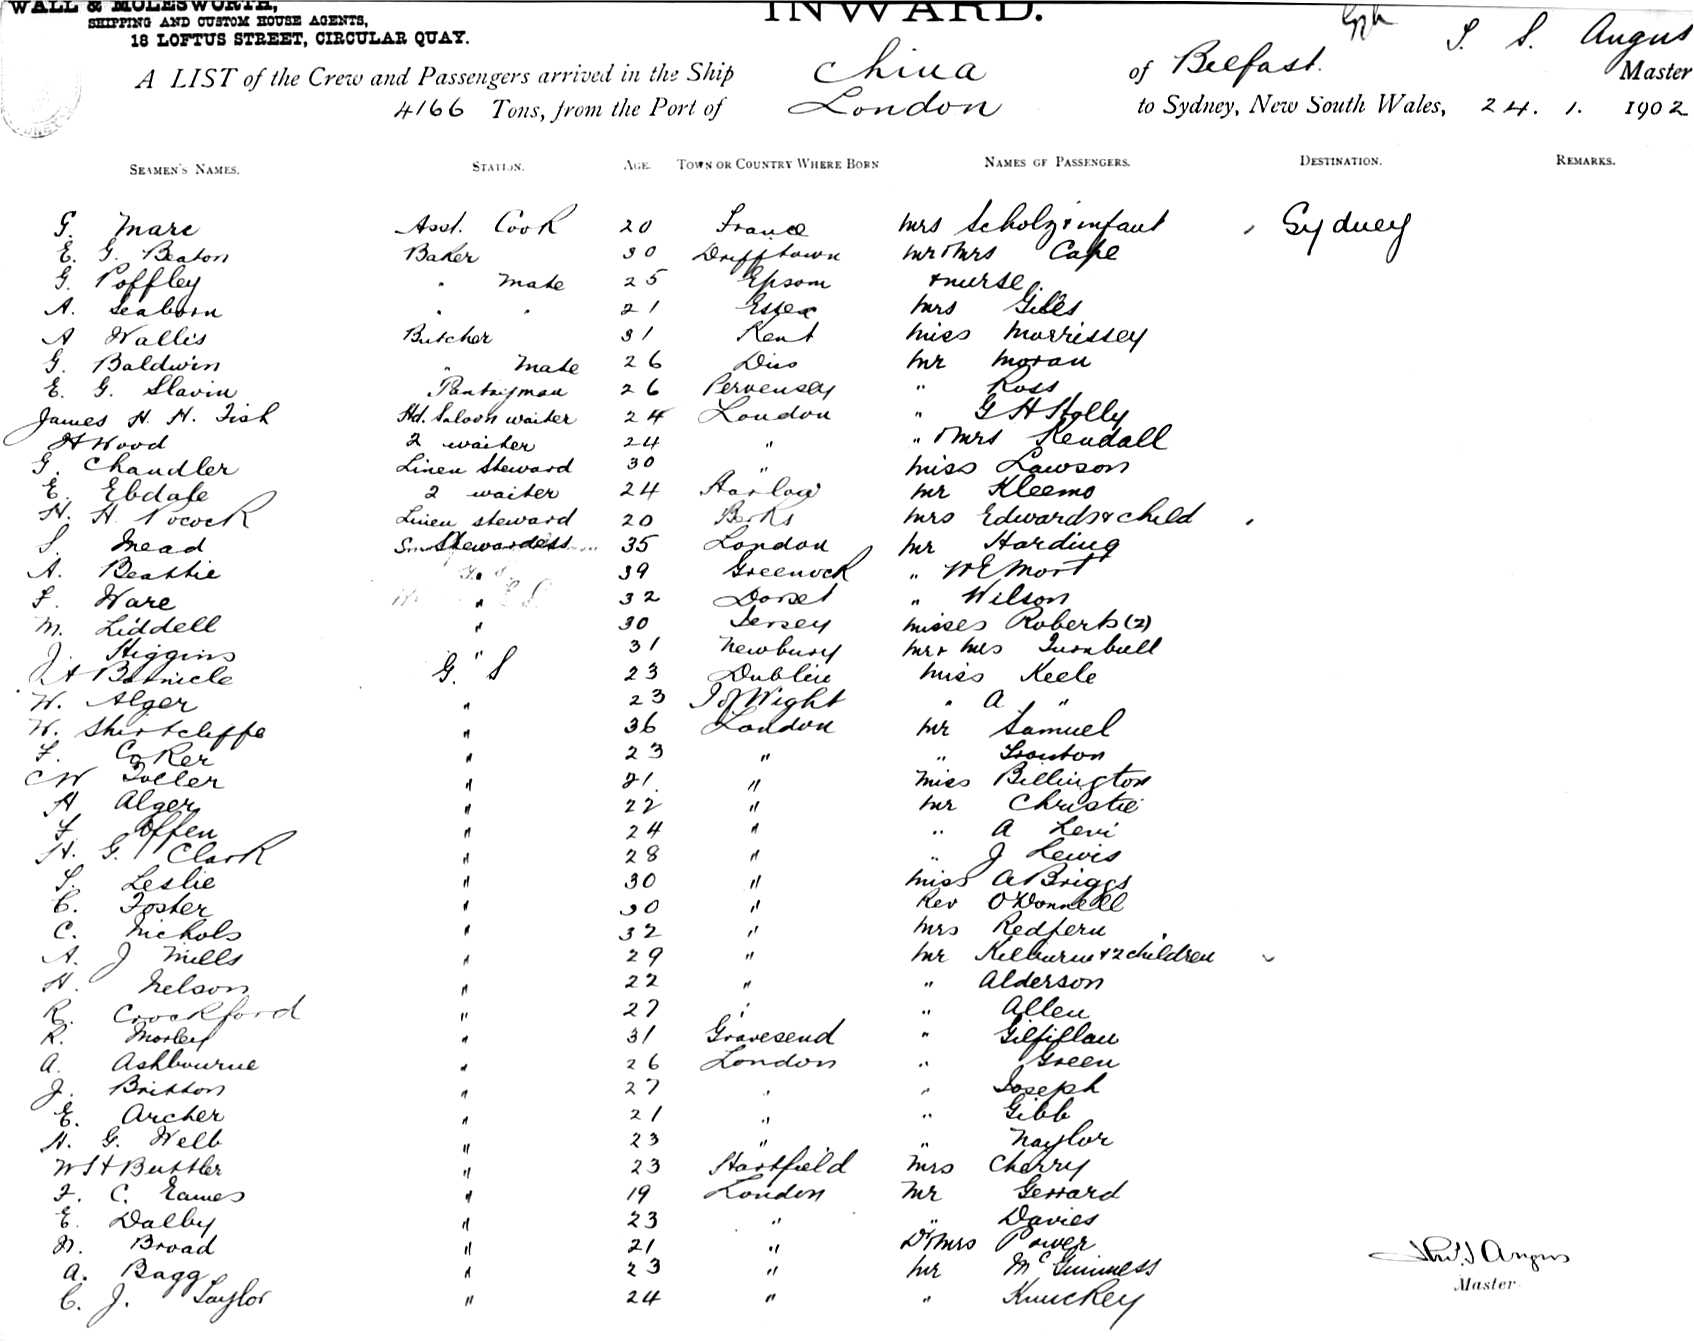 WALL & MOLESWORTH,
SHIPPING AND CUSTOM HOUSE AGENTS,
18 LOFTUS STREET, CIRCULAR QUAY.
INWARD.
S. S. Angus
A LIST of the Crew and Passengers arrived in the Ship China of Belfast. Master
4166 Tons, from the Port of London to Sydney, New South Wales, 24. 1. 1902
SEAMEN'S NAMES. STATION. AGE. TOWN OR COUNTRY WHERE BORN NAMES OF PASSENGERS. DESTINATION. REMARKS.
G. Marc Asst. Cook 20 France Mrs Scholz & infant , Sydney
E. G. Beaton Baker 30 Drifftown Mr & Mrs Cape
G. Poffley " Mate 25 Epsom & nurse
A. Seaborn " " 21 Essex Mrs Giles
A Wallis Butcher 31 Kent Miss Morrissey
G. Baldwin " Mate 26 Diss Mr Moran
E. G. Slavin Pantryman 26 Pervensey " Ross
James H. H. Fish Hd. Saloon waiter 24 London " G H Holly
H Wood 2 waiter 24 " " & Mrs Kendall
G. Chandler Linen Steward 30 " Miss Lawson
E. Ebdale 2 waiter 24 Harlow Mr Kleemo
H. H. Pocock Linen steward 20 Berks Mrs Edwards & child ,
S. Mead Stewardess 35 London Mr Harding
A. Beattie 39 Greenock " W E Mort
F. Ware " 32 Dorset " Wilson
M. Liddell " 30 Jersey Misses Roberts (2)
J. Higgins " 31 Newbury Mr & Mrs Turnbull
Barnicle G. S 23 Dublin Miss Keele
W. Alger " 23 I of Wight " A "
W. Shirtcliffe " 36 London Mr Samuel
F. Coker " 23 " " Trouton
C W Toller " 21 " Miss Billington
A Alger " 22 " Mr Christie
F. Offen " 24 " " A Levi
H. G. Clark " 28 " " J Lewis
S. Leslie " 30 " Miss A Briggs
C. Foster " 30 " Rev O'Donnell
C. Nichols " 32 " Mrs Redfern
A. J Mills " 29 " Mr Kilburne & 2 children
H. Nelson " 22 " " Alderson
R. Crockford " 27 " " Allen
R. Morley " 31 Gravesend " Gilfillan
A. Ashbourne " 26 London " Green
J. Britton " 27 " " Joseph
E. Archer " 21 " " Gibb
H. G. Webb " 23 " " Naylor
W S H Buttler " 23 Hartfield Mrs Cherry
F. C. Eames " 19 London Mr Gerrard
E. Dalby " 23 " " Davies
N. Broad " 21 " Dr & Mrs Power
A. Bagg " 23 " Mr McGuinness
C. J. Taylor " 24 " " Knuckey
Angus
Master